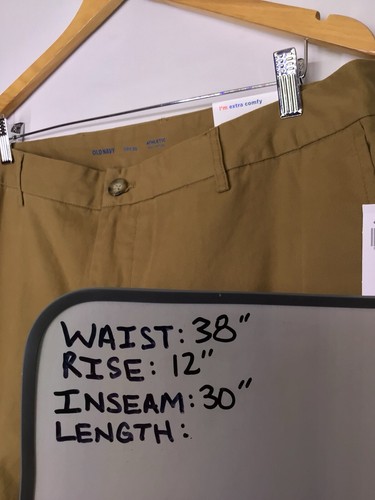 I'm extra comfy
OLD NAVY
WAIST: 38"
RISE: 12"
INSEAM: 30"
LENGTH: